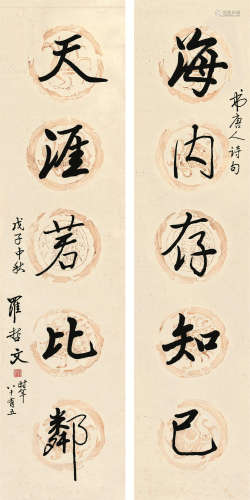 书唐人诗句
海内存知己
天涯若比鄰
戊子中秋
羅哲文
時年
八十有五